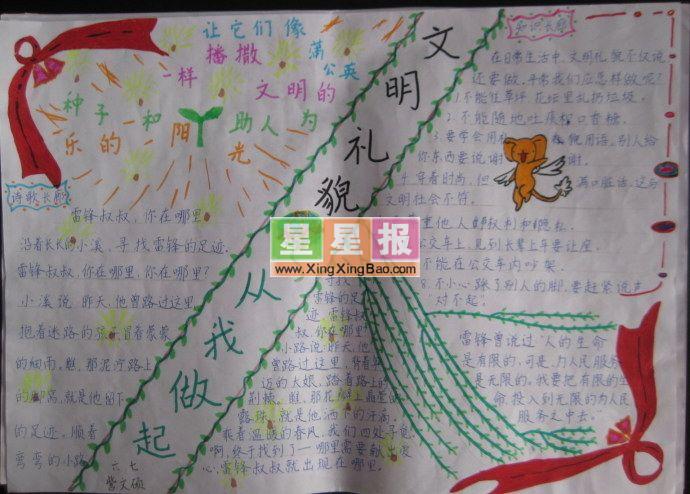 让它们像
播撒 蒲
一样 文明的 公英
种子 和 阳 助人 为
乐的 光
文明礼貌
从我做起
诗歌长廊
雷锋叔叔,你在哪里
沿着长长的小溪,寻找雷锋的足迹.
雷锋叔叔,你在哪里,你在哪里?
小溪说:昨天,他曾路过这里,
抱着迷路的孩子,冒着蒙蒙
的细雨。瞧,那泥泞路上
的脚窝,就是他留下
的足迹。顺着
弯弯的小路,
寻找
雷锋的足
迹.雷锋叔
叔,你在哪里
小路说:昨天,他
曾路过这里,背着年
迈的大娘,踏着路上的
荆棘。瞧,那花瓣上晶莹的
露珠,就是他洒下的汗滴.
乘着温暖的春风,我们四处寻觅.
啊,终于找到了—哪里需要献出爱
心,雷锋叔叔就出现在哪里.
六七
知识长廊
在日常生活中,文明礼貌不仅说
还要做,平常我们应怎样做呢?
1.不能往草坪、花坛里乱扔垃圾.
2.不能随地吐痰和口香糖.
3.要学会用礼貌用语,别人给
你东西要说谢谢.
4.穿着时尚,但满口脏话,这与
文明社会不符.
重他人的权利和隐私.
公交车上,见到长辈上车要让座.
不能在公交车内吵架.
8.不小心踩了别人的脚,要赶紧说声
“对不起”.
雷锋曾说过“人的生命
是有限的,可是,为人民服务
是无限的,我要把有限的生
命,投入到无限的为人民
服务之中去。”
星星报
www.XingXingBao.com